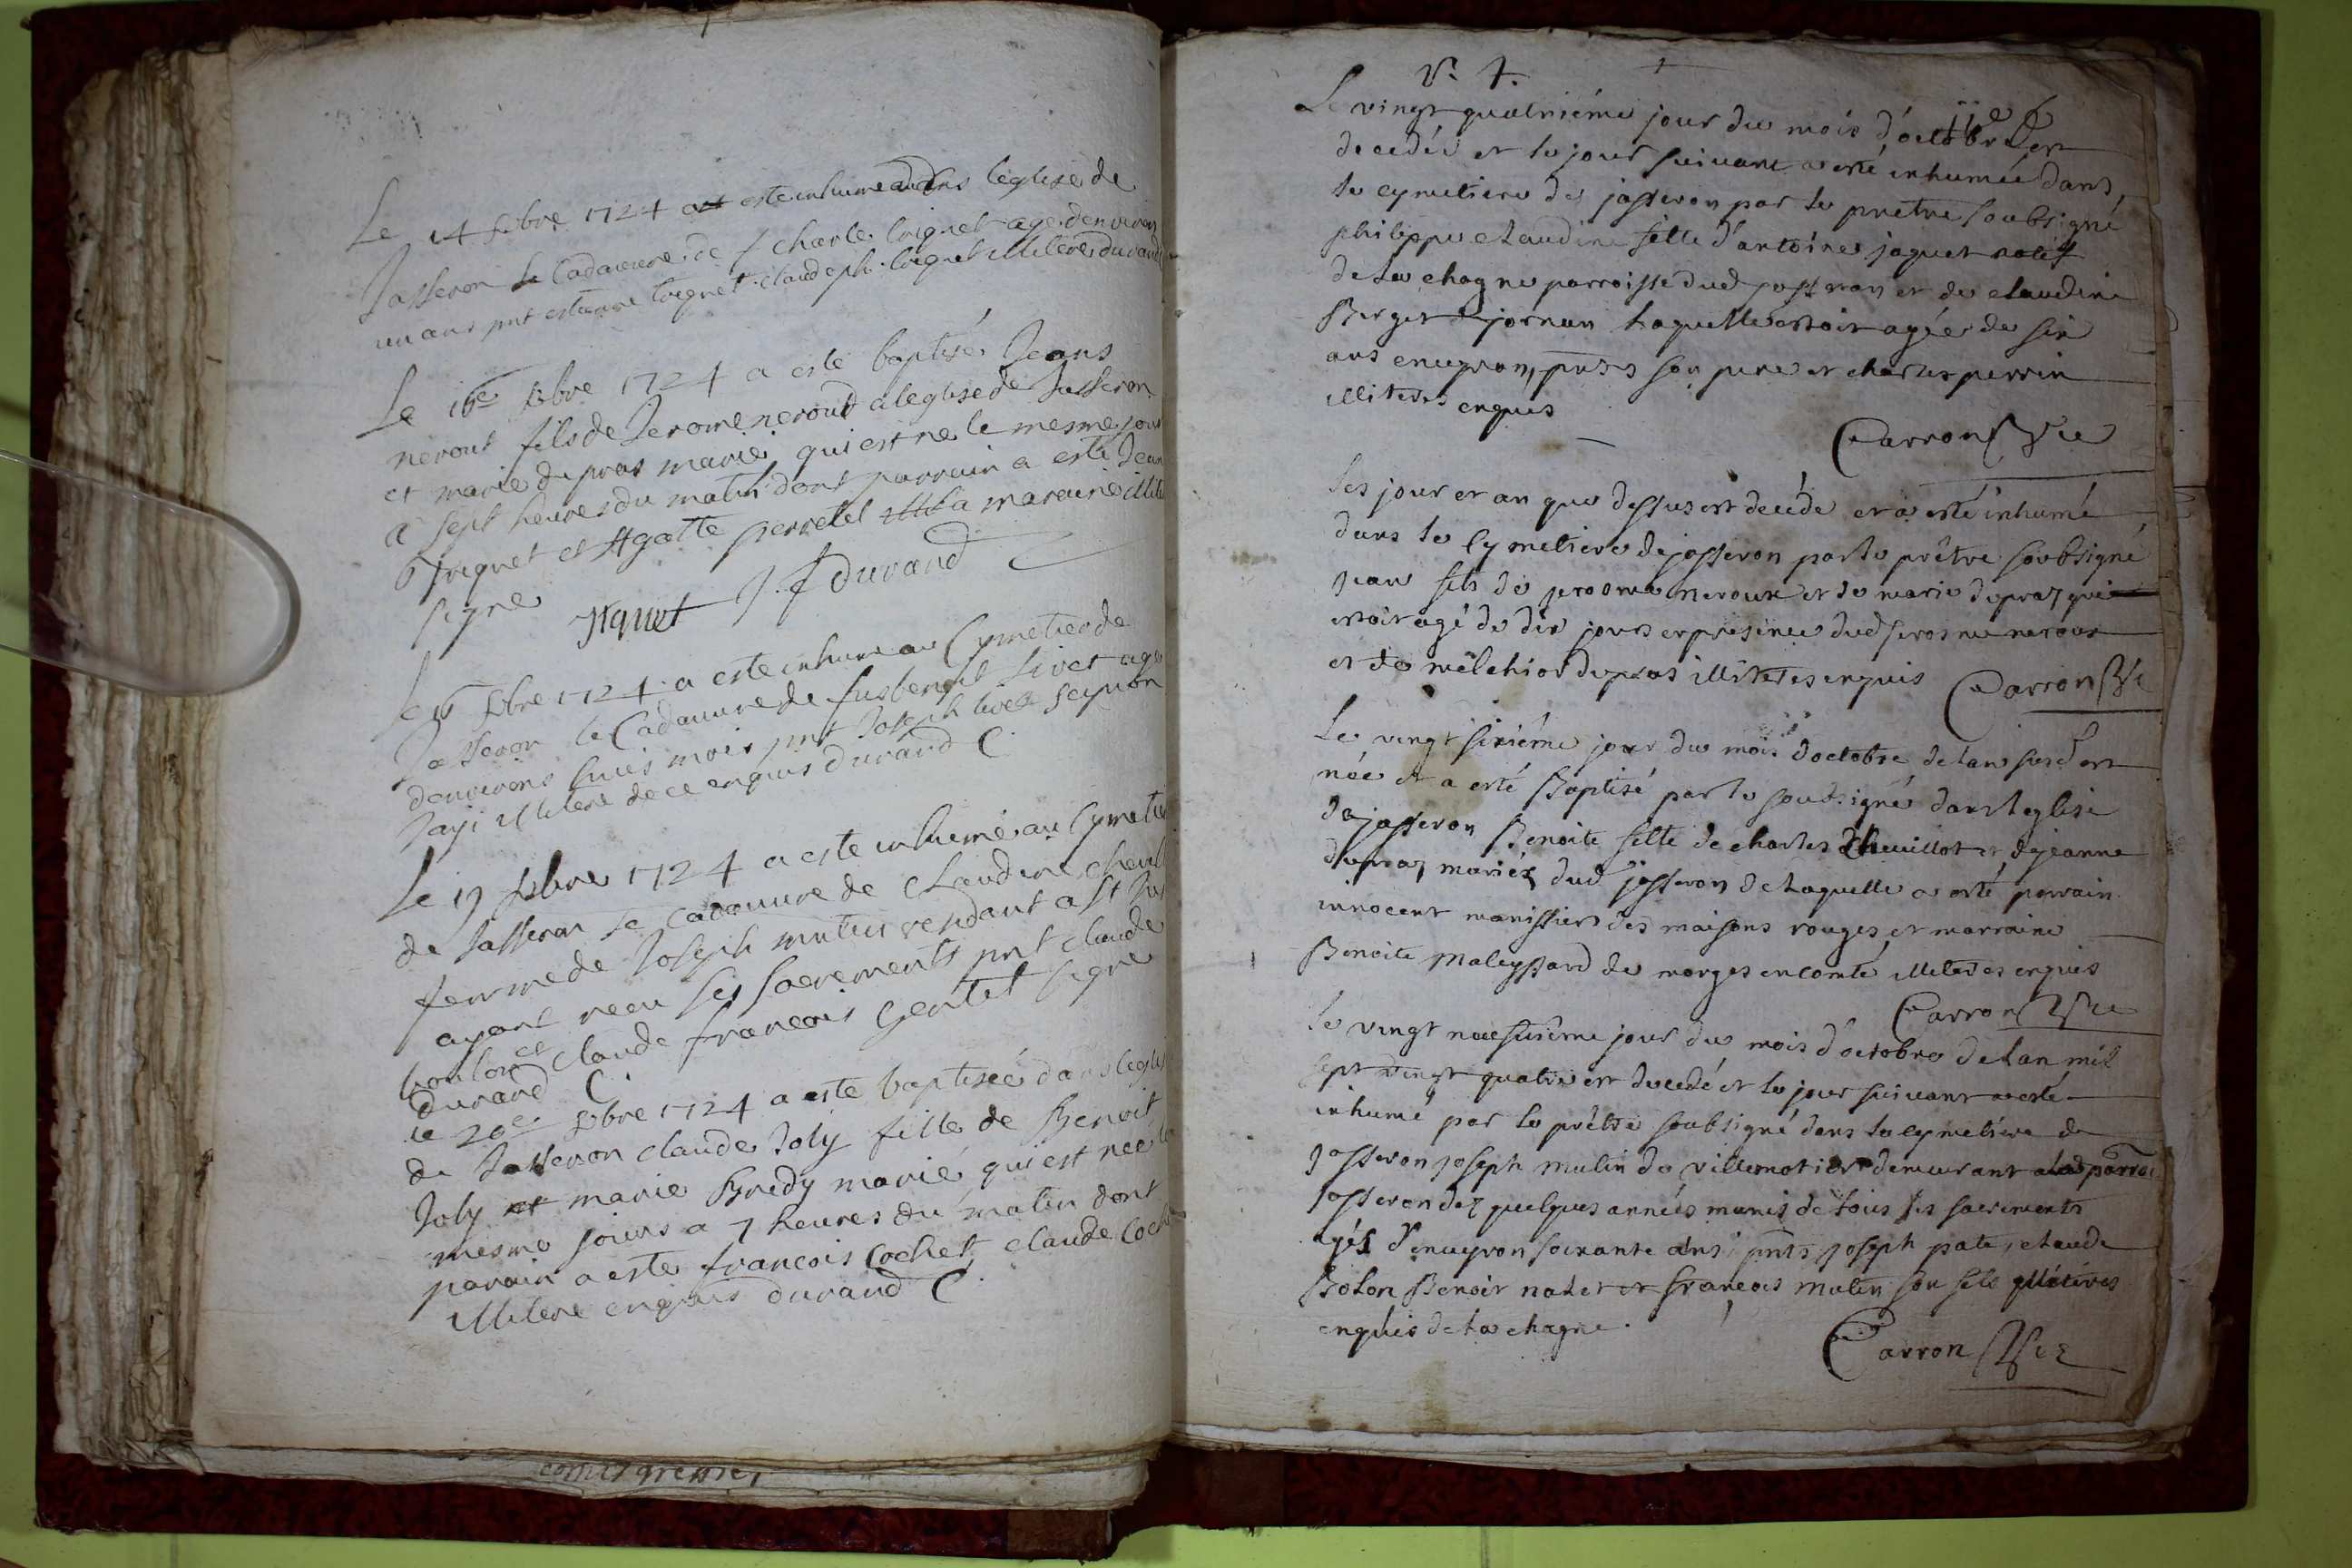 Le 14 8bre 1724 a este inhume dans leglise de
Jasseron le Cadavure de f charle trignet age denviron
un ans pnt estienne trignet claude ph. trignet illitere durand
Le 16e 8bre 1724 a este baptisé Jeans
neroud fils de Jerome neroud a leglise de Jasseron
et marie du pras marié qui est ne le mesme jour
a sept heures du matin dont parrain a esté Jean
trignet et Agatte perretel la maraine illite
signe
Jiquet J. f durand
Le 16 8bre 1724 a este inhume au Cymetier de
Jasseron le Cadavure de livet age
denvirons mois pnt Joseph livet
illitere de ce enquis durand C.
Le 19 8bre 1724 a este inhumé au Cymetie
de Jasseron le cadavure de Claudine
femme de Joseph mutin rendant a
ayant receu ses sacrements pnt claude
boulon et claude francois gentet signe
durand C.
le 20e 8bre 1724 a este baptisée dans leglis
de Jasseron claude Joly fille de Benoit
Joly et marie Bredy marié qui est nee le
mesme jours a 7 heures du matin dont
parain a este francois Cochet claude Coch
illitere enquis durand C.
comis greffier
V. 4.
Le vingt quatriéme jour du mois d'octobre est
decedée et le jour suivant a esté inhumée dans
le cymetiere de jasseron par le prêtre soubsigné
philippe claudine fille d'antoine jaquet natif
de la chagne parroisse dud jasseron et de claudine
Berger jornan laquelle estoit agée de six
ans enuyron, pnts son pere et charles perrin
illiteres enquis
Carron Vic
Les jour et an que dessus est decedé et a esté inhumé
dans le Cymetiere de jasseron par le prêtre soubsigné
jean fils de jerome neroux et de marie dupraz qui
estoit agé de dix jours en presence dud jerosme neroux
et de melchior dupras illiteres enquis Carron Vic
Le vingt sixiéme jour du mois d'octobre de lan susd est
née et a esté Baptisé par le soubsigné dans leglise
de jasseron Benoite fille de charles Chevillot et de jeanne
dupraz mariéz dud jasseron de laquelle a esté parrain
innocent manissier des maisons rouges et marraine
Benoite maleyssard de marges en comté illiteres enquis
Carron Vic
Le vingt neufsiême jour du mois d'octobre de lan mil
sept vingt quatre est decedé et le jour suivant a esté
inhumé par le prêtre soubsigné dans le cymetiere de
Jasseron joseph mulin de villemotier demeurant a la parroi
jasseron dez quelques années munis de tous ses sacrements
agés d'enuyron soixante ans pnts joseph pate, claude
Bolon Benoit nalet et francois mulin son fils illitéres
enquis de la chagne.
Carron Vic